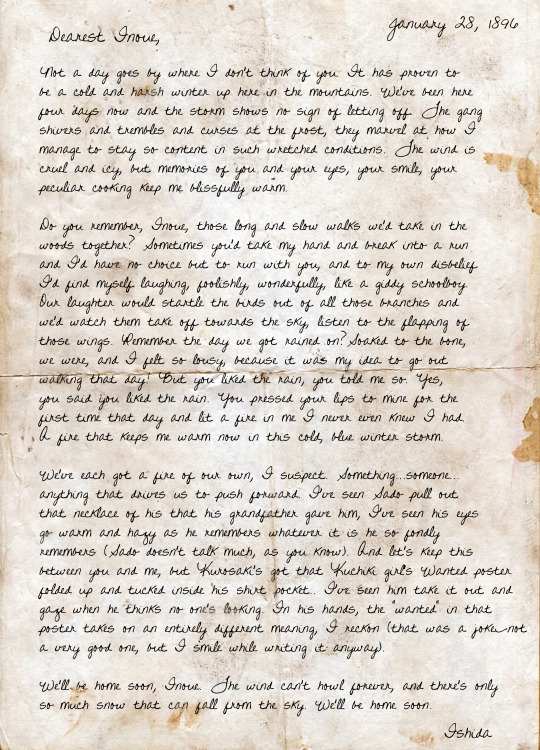 January 28, 1896
Dearest Inoue,
Not a day goes by where I don't think of you. It has proven to
be a cold and harsh winter up here in the mountains. We've been here
four days now and the storm shows no sign of letting off. The gang
shivers and trembles and curses at the frost, they marvel at how I
manage to stay so content in such wretched conditions. The wind is
cruel and icy, but memories of you and your eyes, your smile, your
peculiar cooking keep me blissfully warm.
Do you remember, Inoue, those long and slow walks we'd take in the
woods together? Sometimes you'd take my hand and break into a run
and I'd have no choice but to run with you, and to my own disbelief
I'd find myself laughing, foolishly, wonderfully, like a giddy schoolboy.
Our laughter would startle the birds out of all those branches and
we'd watch them take off towards the sky, listen to the flapping of
those wings. Remember the day we got rained on? Soaked to the bone,
we were, and I felt so lousy, because it was my idea to go out
walking that day! But you liked the rain, you told me so. Yes,
you said you liked the rain. You pressed your lips to mine for the
first time that day and lit a fire in me I never even knew I had.
A fire that keeps me warm now in this cold, blue winter storm.
We've each got a fire of our own, I suspect. Something...someone...
anything that drives us to push forward. I've seen Sado pull out
that necklace of his that his grandfather gave him, I've seen his eyes
go warm and hazy as he remembers whatever it is he so fondly
remembers (Sado doesn't talk much, as you know). And let's keep this
between you and me, but Kurosaki's got that Kuchiki girl's Wanted poster
folded up and tucked inside his shirt pocket.. I've seen him take it out and
gaze when he thinks no one's looking. In his hands, the "wanted" in that
poster takes on an entirely different meaning, I reckon (that was a joke—not
a very good one, but I smile while writing it anyway).
We'll be home soon, Inoue. The wind can't howl forever, and there's only
so much snow that can fall from the sky. We'll be home soon.
Ishida